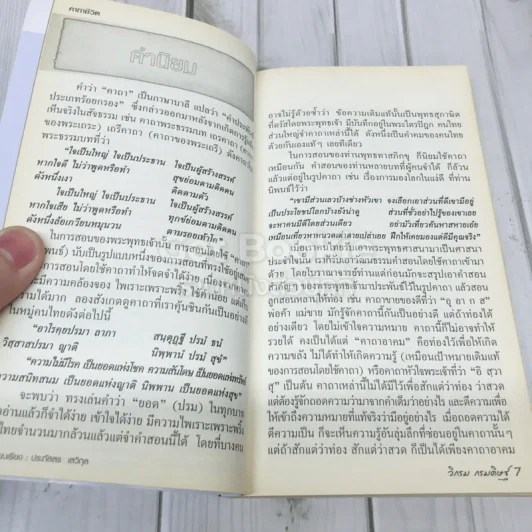 คาถาชีวิต
คำนิยม
คำว่า “คาถา” เป็นภาษาบาลี แปลว่า “คำประพันธ์
ประเภทร้อยกรอง” ซึ่งกล่าวออกมาหลังจากเกิดการรู้แจ้ง
เห็นจริงในสัจธรรม เช่น คาถาพระธรรมบท เถรคาถา (คาถา
ของพระเถระ) เถรีคาถา (คาถาของพระเถรี) ดังคาถาใน
พระธรรมบทที่ว่า
ใจเป็นใหญ่ ใจเป็นประธาน ใจเป็นผู้สร้างสรรค์
หากใจดี ไม่ว่าพูดหรือทำ สุขย่อมตามติดตน
ดังหนึ่งเงา ติดตามตัว
ใจเป็นใหญ่ ใจเป็นประธาน ใจเป็นผู้สร้างสรรค์
หากใจเสีย ไม่ว่าพูดหรือทำ ทุกข์ย่อมตามติดตน
ดังหนึ่งล้อเกวียนหมุนวน ตามรอยเท้าโค”
ในการสอนของพระพุทธเจ้านั้น การสอนโดยใช้
พันธ์) นับเป็นรูปแบบหนึ่งของการสอนที่ทรงใช้อยู่เสมอ
การสอนโดยใช้คาถาทำให้จดจำได้ง่าย เนื่องจาก
มีความคล้องจอง ไพเราะเพราะพริ้ง ใช้คำน้อย แต่กิน
ได้มาก ลองสังเกตดูคาถาที่เราคุ้นชินกันเป็นอย่างดี
ในหมู่คนไทยดังต่อไปนี้
“อาโรคฺยปรมา ลาภา สนฺตุฏฺฐี ปรมํ ธนํ
วิสฺสาสปรมา ญาติ นิพฺพานํ ปรมํ สุขํ”
“ความไม่มีโรค เป็นยอดแห่งโชค ความสันโดษ เป็นยอดแห่งทรัพย์
ความสนิทสนม เป็นยอดแห่งญาติ นิพพาน เป็นยอดแห่งสุข”
จะพบว่า ทรงเล่นคำว่า “ยอด” (ปรม) ในทุกบาท
อ่านแล้วก็จำได้ง่าย เข้าใจได้ง่าย มีความไพเราะเพราะพริ้ง
ไทยจำนวนมากล้วนแล้วแต่จำคำสอนนี้ได้ โดยที่บางคน
เรียบเรียง : ประภัสสร เสวิกุล
อาจไม่รู้ด้วยซ้ำว่า ข้อความเดิมแท้นั้นเป็นพุทธสุภาษิต
ที่ตรัสโดยพระพุทธเจ้า มีบันทึกอยู่ในพระไตรปิฎก คนไทย
ส่วนใหญ่จำคาถาเหล่านี้ได้ ดังหนึ่งเป็นคำคมของคนไทย
ด้วยกันเองแท้ๆ เลยทีเดียว
ในการสอนของท่านพุทธทาสภิกขุ ก็นิยมใช้คาถา
เหมือนกัน คำสอนของท่านหลายบทที่ผู้คนจำได้ ก็ล้วน
อยู่ในรูปของคาถา เช่น เรื่องการมองโลกในแง่ดี ที่ท่าน
นิพนธ์ไว้ว่า
“เขามีส่วนเลวบ้างช่างหัวเขา จงเลือกเอาส่วนที่ดีเขามีอยู่
เป็นประโยชน์โลกบ้างยังน่าดู ส่วนที่ชั่วอย่าไปรู้ของเขาเลย
จะหาคนมีดีโดยส่วนเดียว อย่ามัวเที่ยวค้นหาสหายเอ๋ย
เหมือนเที่ยวหาหนวดเต่าตายเปล่าเลย ฝึกให้เคยมองแต่ดีมีคุณจริง”
เมื่อเราคนไทยรับเอาพระพุทธศาสนามาเป็นศาสนา
ประจำใจนั้น เราก็รับเอาธรรมเนียมการสอนโดยใช้คาถาเข้า
มาด้วย โดยโบราณาจารย์ท่านแต่ก่อนมักจะสรุปเอาคำสอน
ยาวๆ ของพระพุทธเจ้ามาประพันธ์ไว้ในรูปคาถา แล้วสอน
ลูกสอนหลานให้ท่อง เช่น คาถาขายของดีที่ว่า “อุ อา ก ส”
พ่อค้า แม่ขาย มักรู้จักคาถานี้กันเป็นอย่างดี แต่ถ้าท่องได้
อย่างเดียว โดยไม่เข้าใจความหมาย คาถานี้ก็ไม่อาจทำให้
รวยได้ คงเป็นได้แค่ “คาถาอาคม” คือท่องไว้เพื่อให้เกิด
ความขลัง ไม่ได้ทำให้เกิดความรู้ (เหมือนเป้าหมายเดิมแท้
ของการสอนโดยใช้คาถา) หรือคาถาหัวใจพระเจ้าที่ว่า “อิ สฺวา
สุ” เป็นต้น คาถาเหล่านี้ไม่ได้มีไว้เพื่อสักแต่ว่าท่อง ว่าสวด
แต่ต้องรู้จักถอดความว่ามาจากคำเดิมว่าอย่างไร และตีความเพื่อ
ให้เข้าถึงความหมายที่แท้จริงว่ามีอยู่อย่างไร เมื่อถอดความได้
ตีความเป็น ก็จะเห็นความรู้อันลุ่มลึกที่ซ่อนอยู่ในคาถานั้นๆ
แต่ถ้าสักแต่ว่าท่อง สักแต่ว่าสวด ก็เป็นได้เพียงคาถาอาคม
วิกรม กรมดิษฐ์ 7